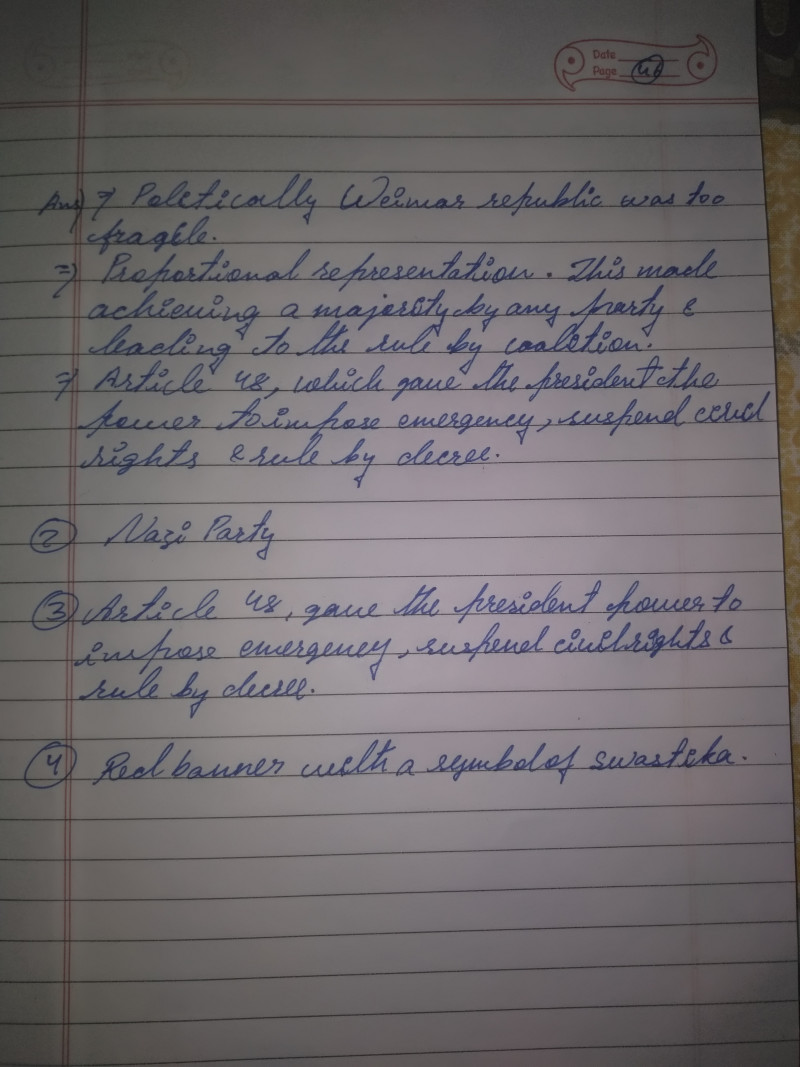 Date
Page 46
Ans) → Politically Weimar republic was too
fragile.
⇒ Proportional representation. This made
achieving a majority by any party &
leading to the rule by coalition.
⇒ Article 48, which gave the president the
power to impose emergency, suspend civil
rights & rule by decree.
② Nazi Party
③ Article 48, gave the president power to
impose emergency, suspend civil rights &
rule by decree.
④ Red banner with a symbol of swastika.